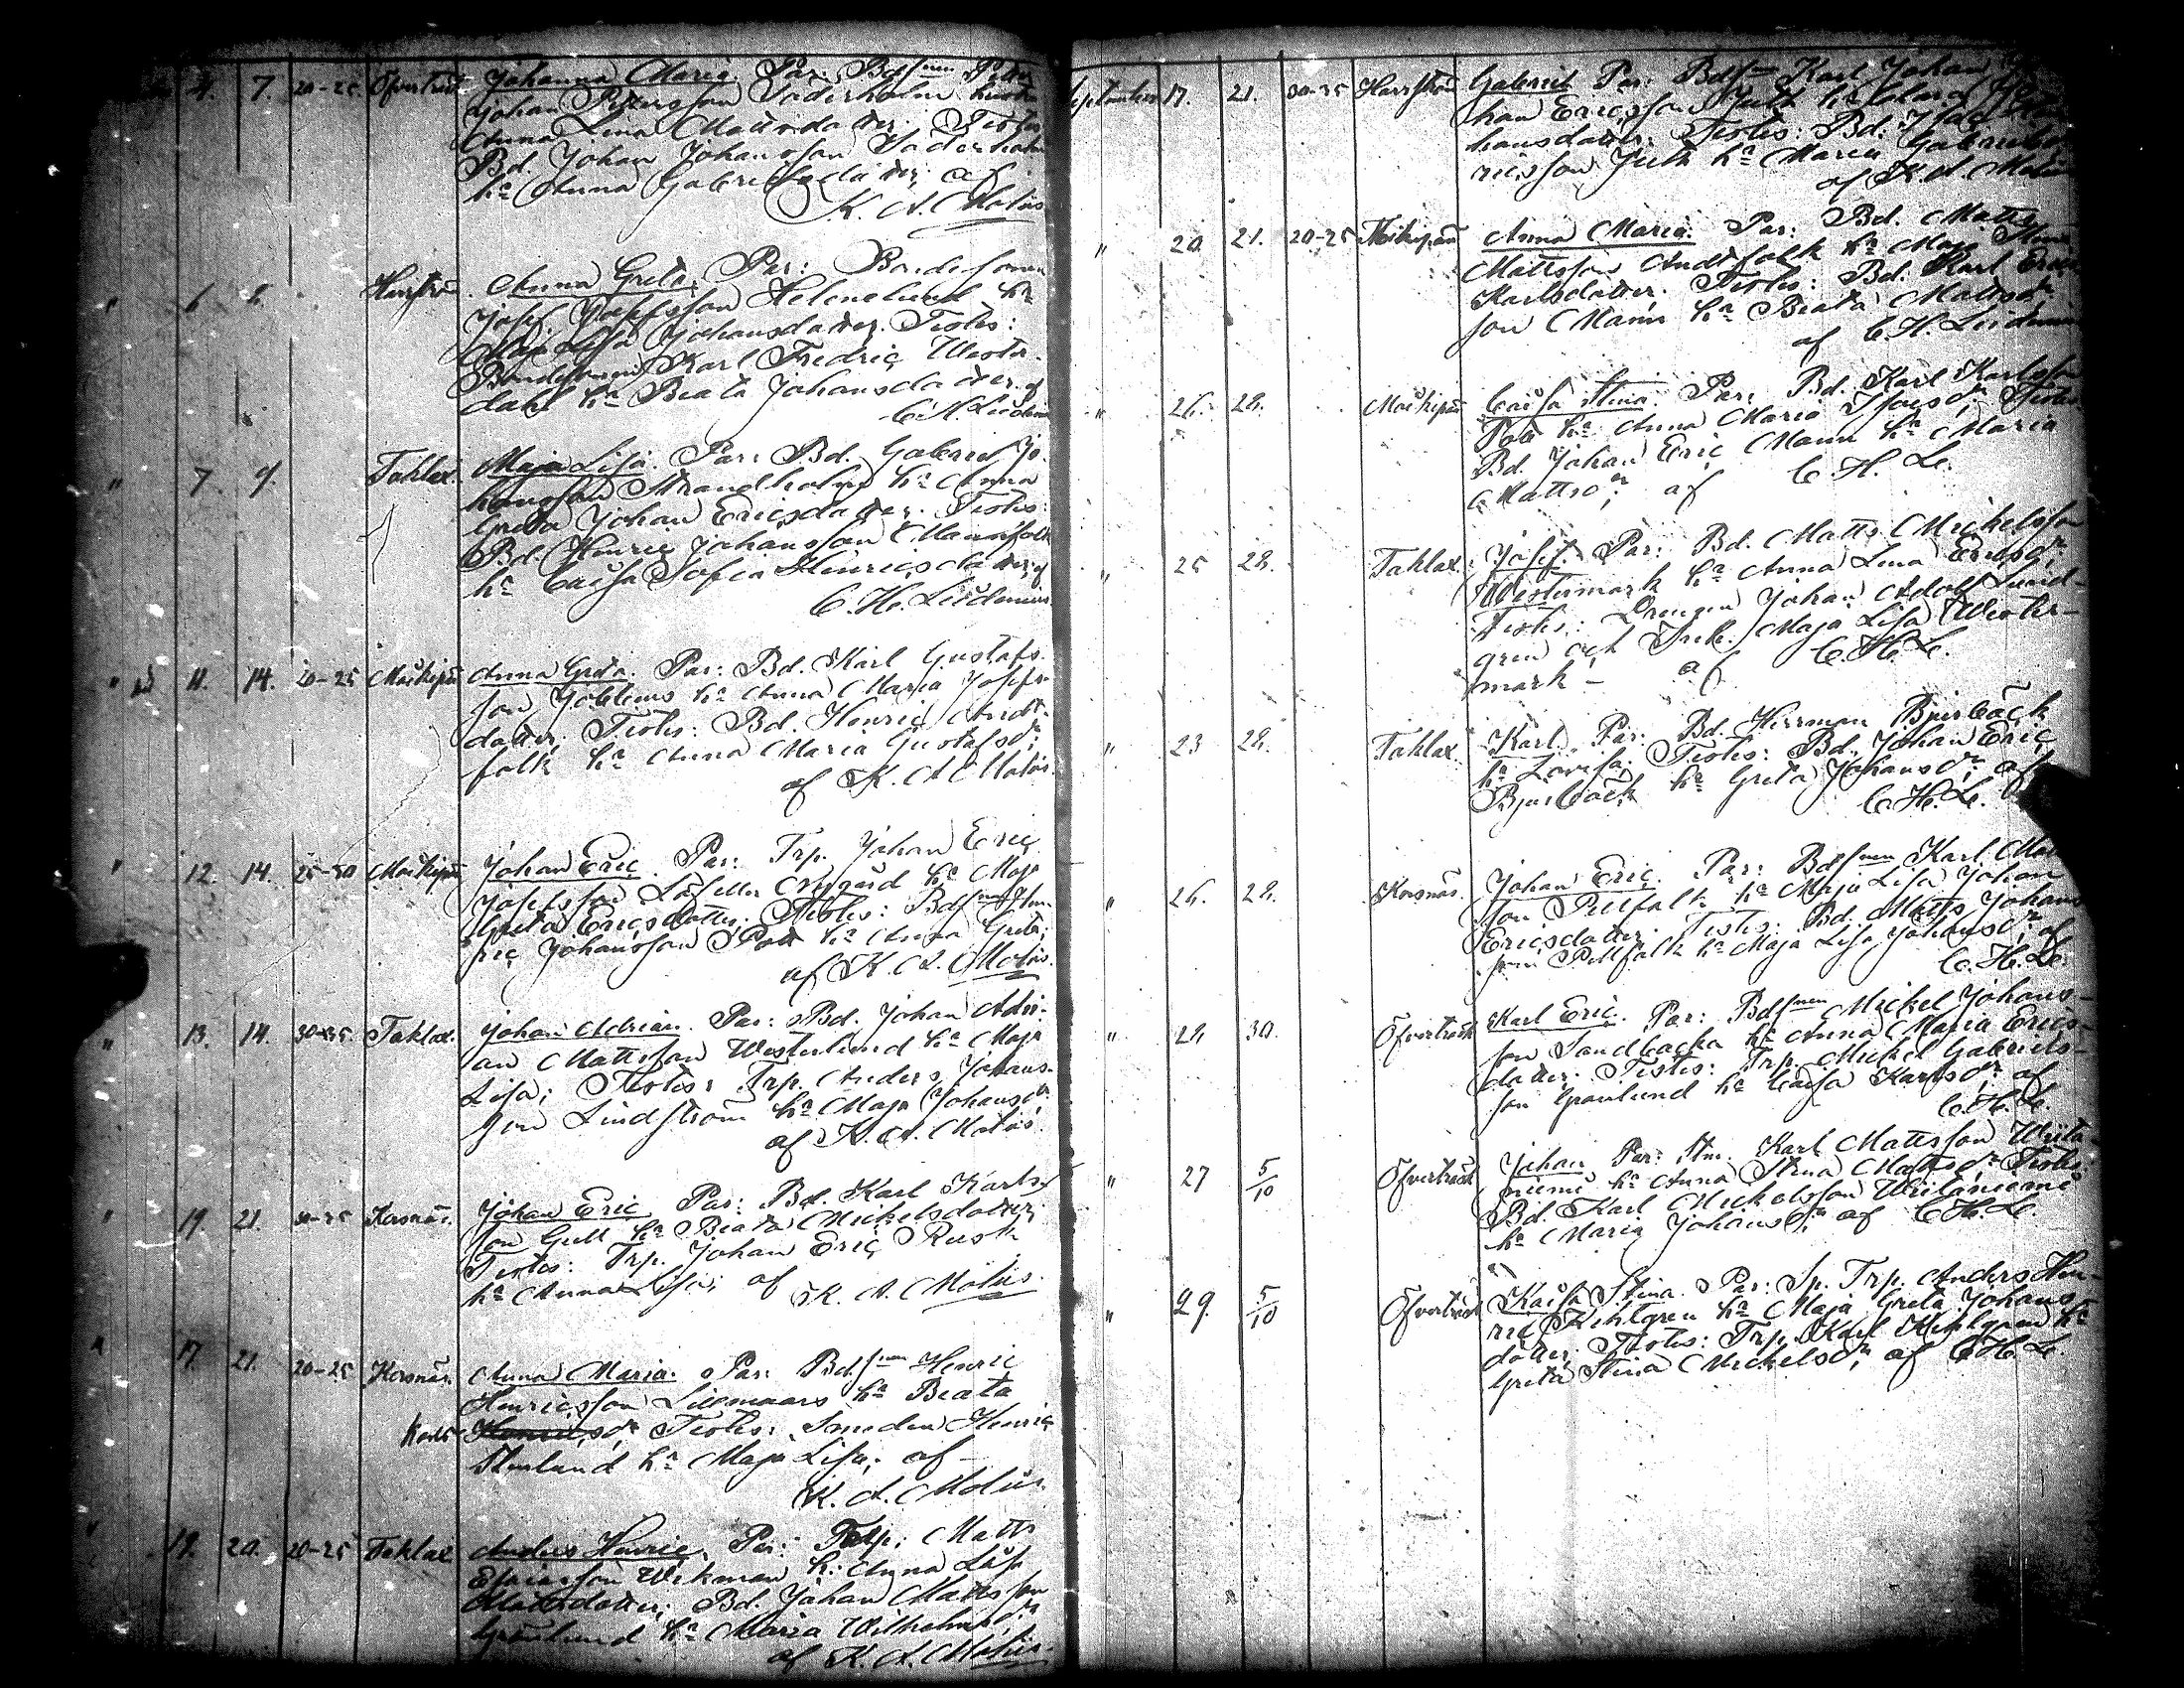 4. 7. 20-25. Öfverträsk Johanna Maria. Par: Bdsmen Peter
Johan Petersson Söderholm hustru
Anna Lena Mattsdotter. Testes:
Bd. Johan Johansson Söderholm
ha Anna Gabrielsdotter; af
K. A. Molús
" 6 8. Harrström Anna Greta. Par: Bondesonen
Josef Josefsson Helenelund ha
Maja Lisa Johansdotter. Testes:
Bondesonen Karl Fredric Wester-
dahl ha Beata Johansdotter; af
C. H. Lidenius
" 7 9. Taklax. Maja Lisa. Par: Bd. Gabriel Jo-
hansson Strandholm ha Anna
Greta Johan Ericsdotter. Testes:
Bd. Henric Johansson Mannfolk
ha Caisa Sofia Henricsdotter; af
C. H. Lidenius.
" 11. 14. 20-25 Moikipää Anna Greta. Par: Bd. Karl Gustafs-
son ha Anna Maria Josefs-
dotter. Testes: Bd. Henric Andt-
folk ha Anna Maria Gustafsdr;
af K. A. Molús.
" 12. 14. 25-30 Moikipää Johan Eric. Par: Trp. Johan Eric
Josefsson Nygård ha Maja
Greta Ericsdotter; Testes: Bdsmen
Johansson ha Anna Greta;
af K. A. Molús.
" 13. 14. 30-35. Taklax. Johan Adrian. Par: Bd. Johan Adri-
an Mattsson Westerlund ha Maja
Lisa; Testes: Trp. Anders Johans-
son Lindström ha Maja Johansdr
af K. A. Molús.
" 19. 21. 30-35 Korsnäs. Johan Eric. Par: Bd. Karl Karls-
son Gull ha Beata Mickelsdotter;
Testes: Trp. Johan Eric Rusk
ha Anna Lisa; af K. A. Molús.
" 17. 21. 20-25 Korsnäs. Anna Maria. Par: Bdsmen Henric
Henricsson Lillmaars ha Beata
Karls Henricsdr; Testes: Smeden Henric
ha Maja Lisa; af
K. A. Molús.
" 19. 20. 20-25 Taklax Anders Henric. Par: Trp. Matts
Wikman h: Anna Lisa
Mattsdotter; Bd. Johan Mattsson
Grönlund ha Maria Wilhelmsdr;
af K. A. Molús.
September 17. 21. 30-35 Harrström Gabriel. Par: Bdsmen Karl Johan
han Ericsson Juth ha Maria Jo-
hansdotter. Testes: Bd. Isac
ricsson Juth ha Maria Gabriels
af K. A. Molús
" 20 21. 20-25 Moikipää Anna Maria. Par: Bd. Matts
Mattsson Andtfolk ha Maja Stina
Karlsdotter. Testes: Bd. Karl Erics-
son Mann ha Beata Mattsdr
af C. H. Lidenius
" 26. 28. Moikipää Caisa Stina. Par: Bd. Karl Karlsson
ha Anna Maria Isacsdr; Testes:
Bd. Johan Eric Mann ha Maria
Mattsdr; af C. H. L.
" 25 28. Taklax. Josef. Par: Bd. Matts Mickelsson
Westermark ha Anna Lena Ericsdr;
Testes: Drengen Johan Adolf Lund-
gren och Maja Lisa Wester-
mark – af C. H. L.
" 23 28. Taklax. Karl. Par: Bd. Herrman Bjurbäck
ha Lovisa; Testes: Bd. Johan Eric
Bjurbäck ha Greta Johansdr; af
C. H. L.
" 26. 28. Korsnäs. Johan Eric. Par: Bdsmen Karl
son Pellfolk ha Maja Lisa Johan
Ericsdotter. Testes: Bd. Matts Johans
son Pellfolk ha Maja Lisa Johansdr; af
C. H. L.
" 28. 30. Öfverträsk Karl Eric. Par: Bdsmen Mickel Johans-
son Sandbacka ha Anna Maria Erics-
dotter. Testes: Trp. Mickel Gabriels-
son Granlund ha Caisa Karlsdr; af
C. H. L.
" 27 5/10 Öfverträsk Johan. Par: Karl Mattsson Wiita-
niemi ha Anna Stina Mattsdr; Testes:
Bd. Karl Mickelsson Wiitaniemi
ha Maria Johansdr; af C. H. L.
" 29. 5/10 Öfverträsk Kaisa Stina. Par: Sp. Trp. Anders Hen-
ric Kihlgren ha Maja Greta Johans-
dotter. Testes: Trp. Karl Kihlgren ha
Greta Stina Mickelsdr; af C. H. L.